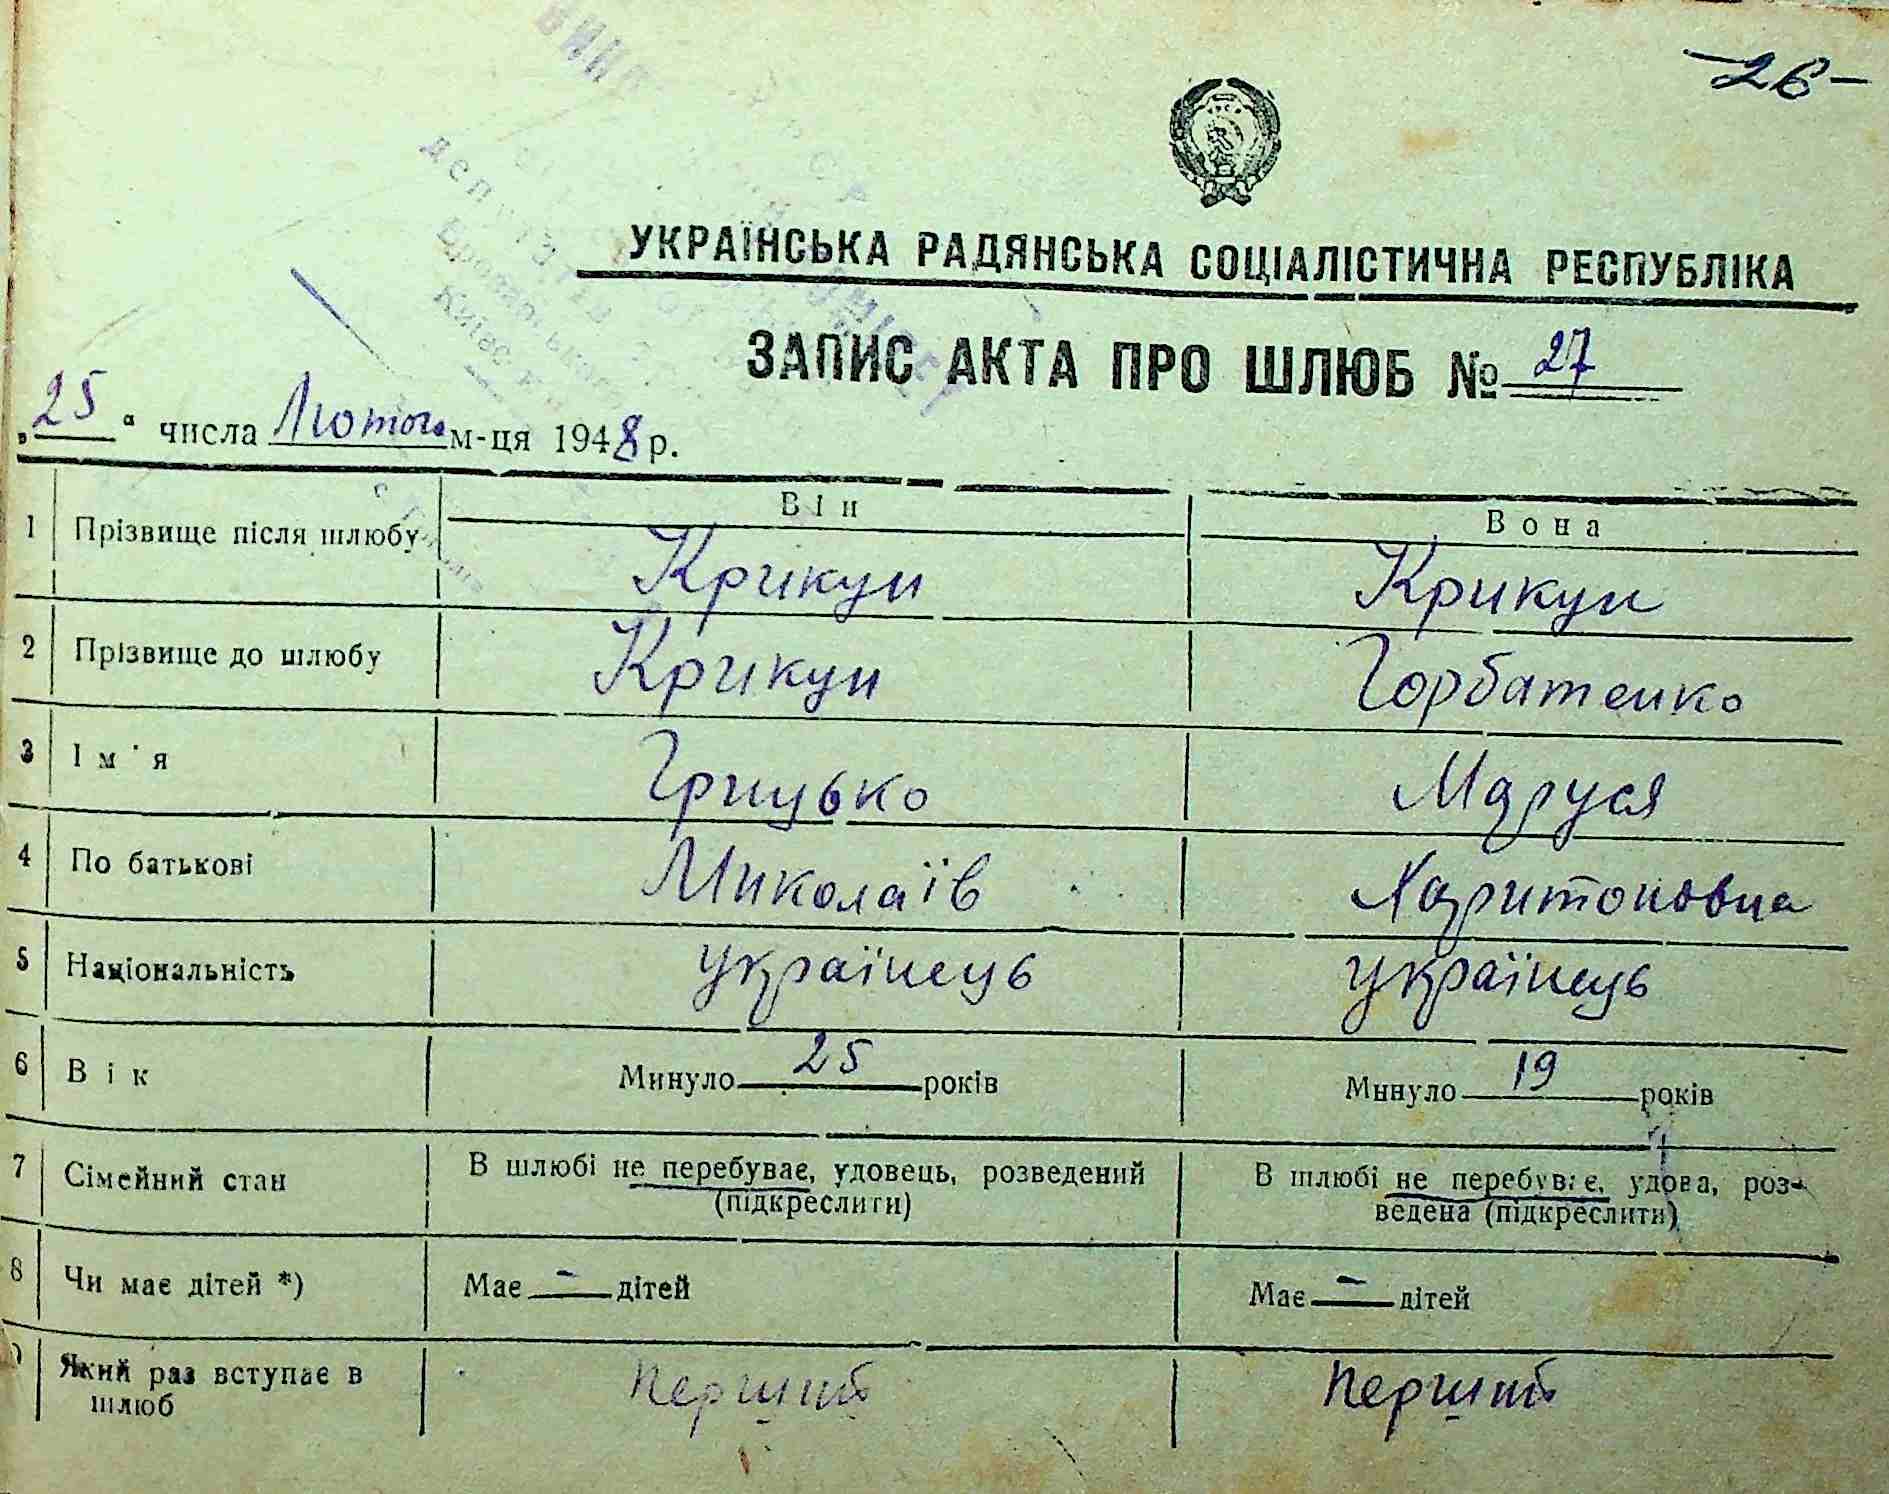 -26-
УКРАЇНСЬКА РАДЯНСЬКА СОЦІАЛІСТИЧНА РЕСПУБЛІКА
ЗАПИС АКТА ПРО ШЛЮБ № 27
„25“ числа Лютого м-ця 1948 р.
Він Вона
1 Прізвище після шлюбу Крикун Крикун
2 Прізвище до шлюбу Крикун Горбатенко
3 Ім'я Грицько Маруся
4 По батькові Миколаїв Харитоновна
5 Національність українець українець
6 Вік Минуло 25 років Минуло 19 років
7 Сімейний стан В шлюбі не перебуває, удовець, розведений (підкреслити) В шлюбі не перебуває, удова, роз-
ведена (підкреслити)
8 Чи має дітей *) Має – дітей Має – дітей
9 Який раз вступає в шлюб Перший Перший